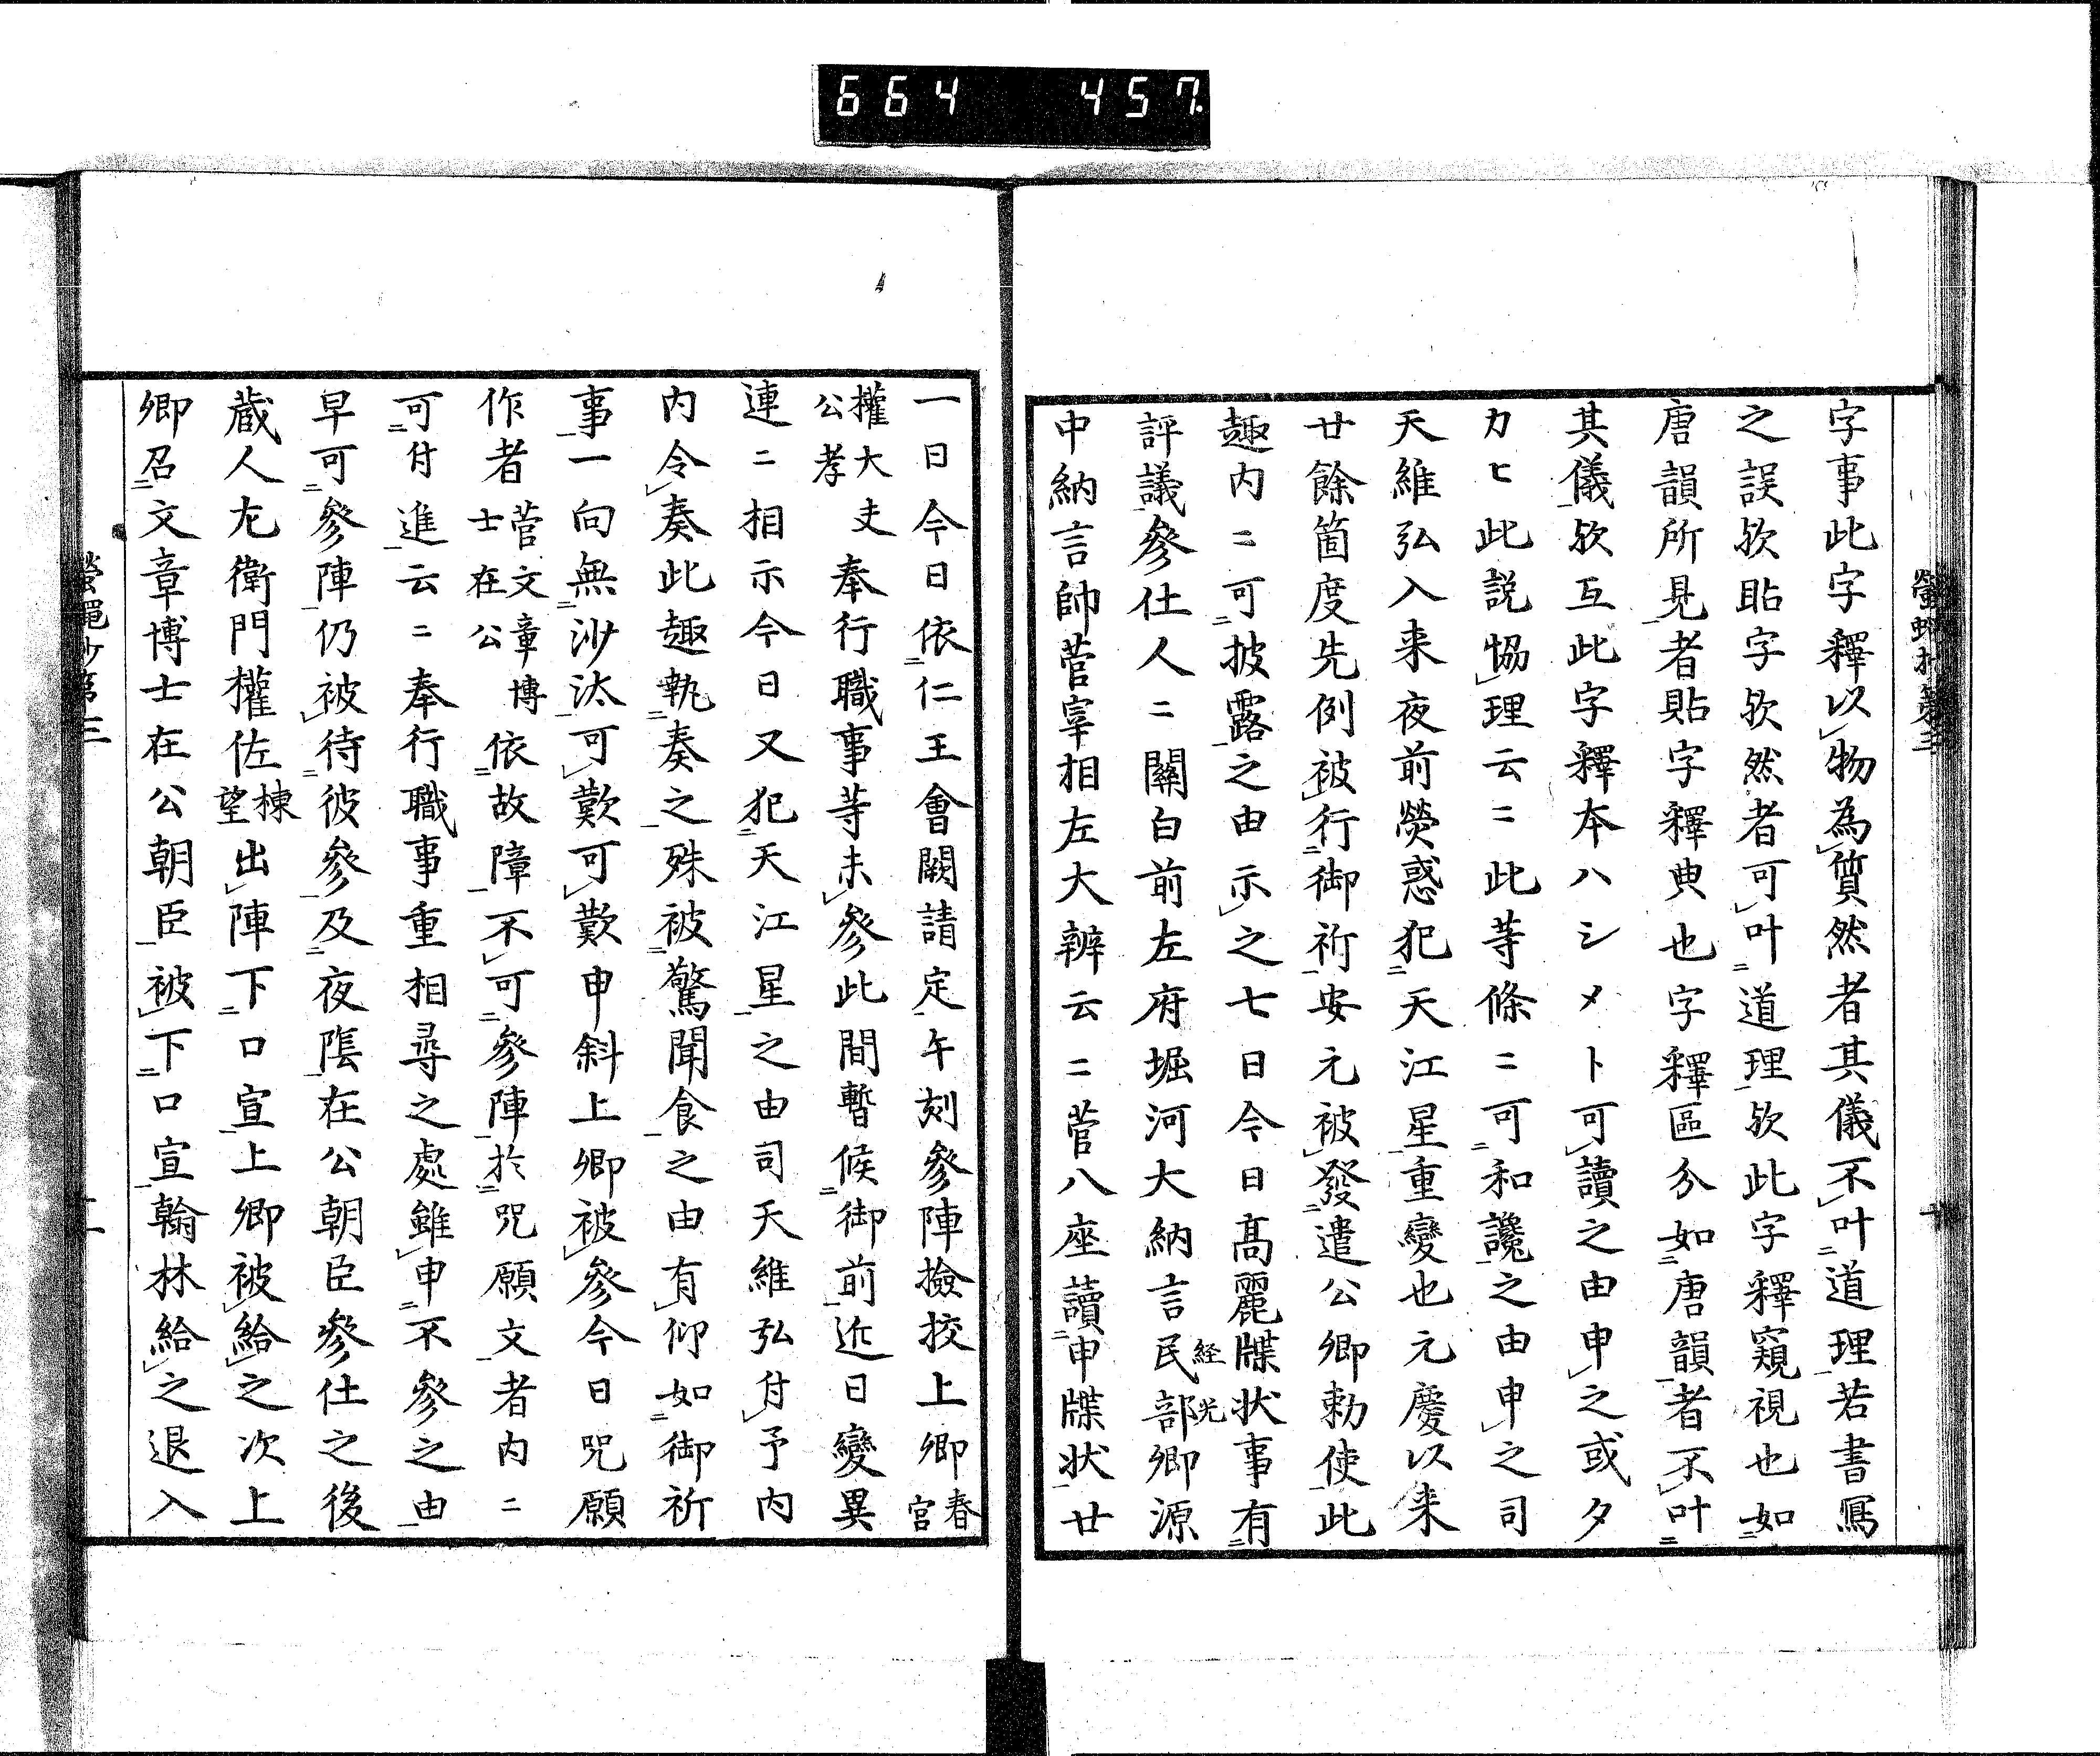 664 457
字事此字釋以物為質然者其儀不叶道理若書寫
之誤欤貼字欤然者可叶道理欤此字釋窺視也如
唐韻所見者貼字釋典也字釋區分如唐韻者不叶
其儀欤互此字釋本ハシメト可讀之由申之或タ
カヒ此説恊理云〻此等條〻可和讒之由申之司
天維弘入来夜前熒惑犯天江星重變也元慶以来
廿餘箇度先例被行御祈安元被發遣公卿勅使此
趣内〻可披露之由示之七日今日髙麗牒状事有
評議參仕人〻關白前左府堀河大納言民部卿源
経光
中納言帥菅宰相左大辨云〻菅八座讀申牒状廿
一日今日依仁王會闕請定午刻參陣撿挍上卿春宮
權大夫公孝奉行職事等未參此間暫候御前近日變異
連〻相示今日又犯天江星之由司天維弘付予内
内令奏此趣執奏之殊被驚聞食之由有仰如御祈
事一向無沙汰可歎可歎申斜上卿被參今日咒願
作者菅文章博士在公依故障不可參陣於咒願文者内〻
可付進云〻奉行職事重相尋之處雖申不參之由
早可參陣仍被待彼參及夜陰在公朝臣參仕之後
蔵人尢衛門權佐棟望出陣下口宣上卿被給之次上
卿召文章博士在公朝臣被下口宣翰林給之退入